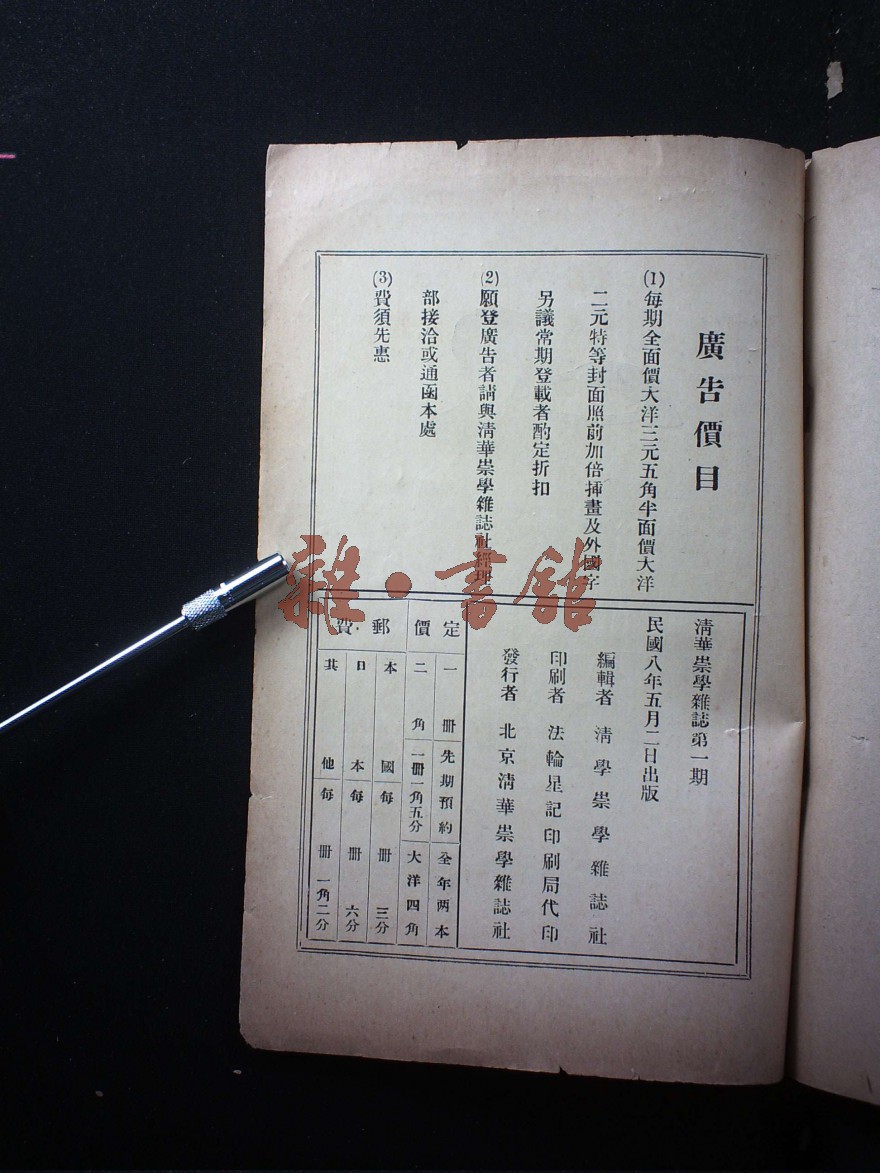 廣告價目
(1)每期全面價大洋三元五角半面價大洋
二元特等封面照前加倍挿畫及外國字
另議常期登載者酌定折扣
(2)願登廣告者請與淸華崇學雜誌社經理
部接洽或通函本處
(3)費須先惠
淸華崇學雜誌第一期
民國八年五月二日出版
編輯者 淸學崇學雜誌社
印刷者 法輪星記印刷局代印
發行者 北京淸華崇學雜誌社
定價 郵費
一冊 先期預約 全年两本
二角 一冊一角五分 大洋四角
本國每冊 三分
日本每冊 六分
其他每冊 一角二分
雜·書館